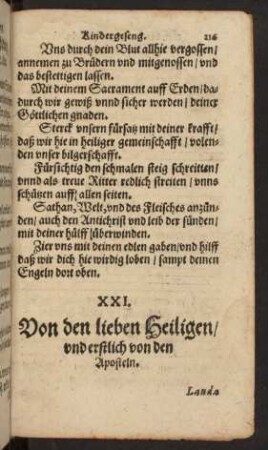 Kindergeseng. 216
Vns durch dein Blut allhie vergossen/
annemen zu Brüdern vnd mitgenossen / vnd
das bestettigen lassen.
Mit deinem Sacrament auff Erden / da-
durch wir gewiß vnnd sicher werden / deiner
Göttlichen gnaden.
Sterck vnsern fürsatz mit deiner krafft/
daß wir hie in heiliger gemeinschafft / volen-
den vnser bilgerschafft.
Fürsichtig den schmalen steig schreitten/
vnnd als treue Ritter redlich streiten / vnns
schützen auff / allen seiten.
Sathan, Welt, vnd des Fleisches anzün-
den / auch den Antichrist vnd leib der sünden/
mit deiner hülff überwinden.
Zier vns mit deinen edlen gaben / vnd hilff
daß wir dich hie wirdig loben / sampt deinen
Engeln dort oben.
XXI.
Von den lieben Heiligen/
vnd erstlich von den
Aposteln.
Lauda